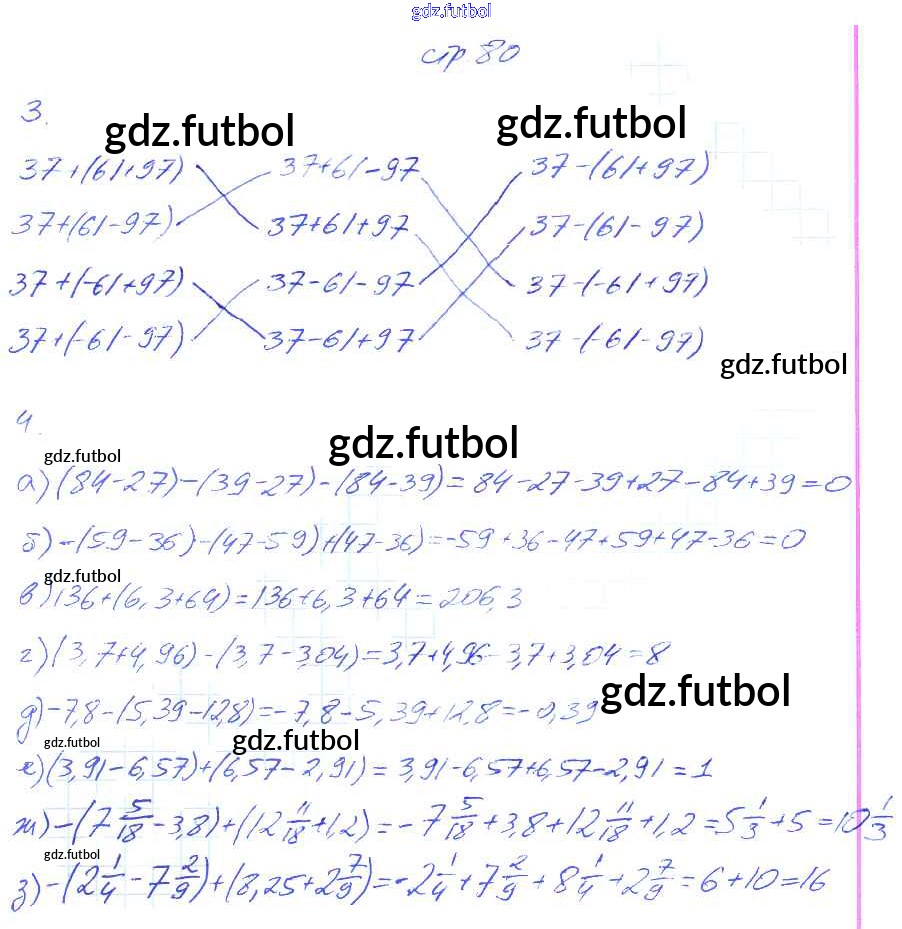 gdz.futbol
стр 80
3.
gdz.futbol gdz.futbol
37+(61+97) 37+61-97 37-(61+97)
37+(61-97) 37+61+97 37-(61-97)
37+(-61+97) 37-61-97 37-(-61+97)
37+(-61-97) 37-61+97 37-(-61-97)
gdz.futbol
4.
gdz.futbol gdz.futbol
а) (84-27)-(39-27)-(84-39)=84-27-39+27-84+39=0
б) -(59-36)-(47-59)+(47-36)=-59+36-47+59+47-36=0
gdz.futbol
в) 136+(6,3+64)=136+6,3+64=206,3
г) (3,7+4,96)-(3,7-3,04)=3,7+4,96-3,7+3,04=8
gdz.futbol
д) -7,8-(5,39-12,8)=-7,8-5,39+12,8=-0,39
gdz.futbol gdz.futbol
е) (3,91-6,57)+(6,57-2,91)=3,91-6,57+6,57-2,91=1
ж) -(7 5/18-3,8)+(12 11/18+1,2)=-7 5/18+3,8+12 11/18+1,2=5 1/3+5=10 1/3
gdz.futbol
з) -(2 1/4-7 2/9)+(8,25+2 7/9)=-2 1/4+7 2/9+8 1/4+2 7/9=6+10=16